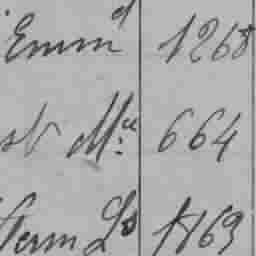 Emm^d 1268
st M^ce 664
Ferm L^s 1169